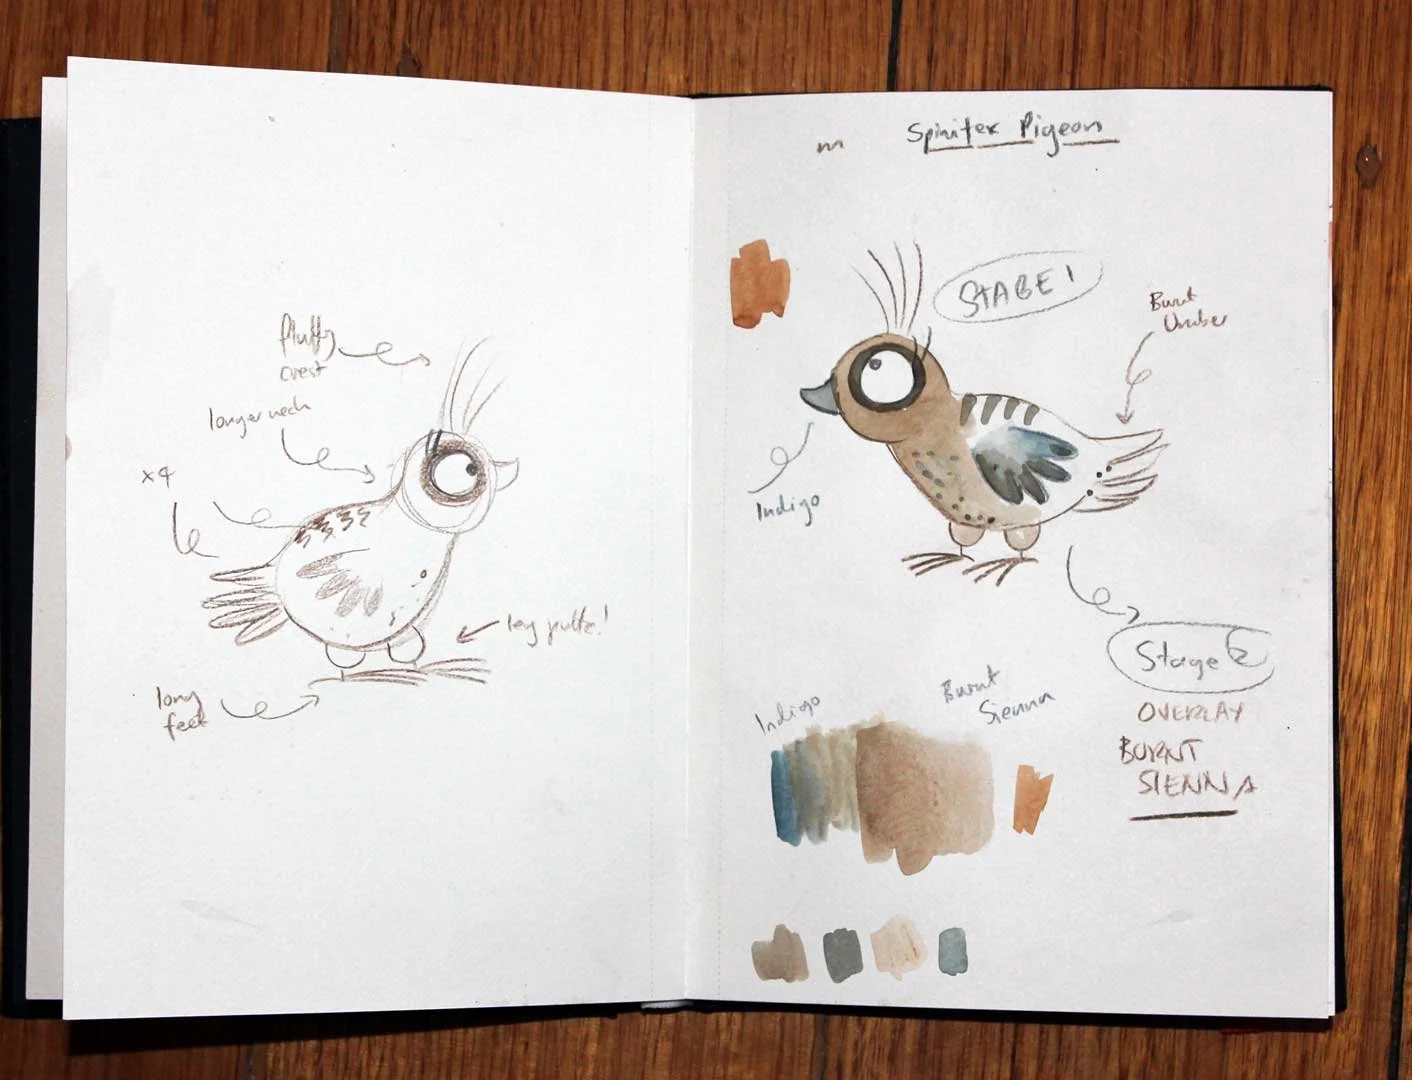 fluffy
crest
longer neck
x4
leg puffs!
long
feet
m
Spinifex Pigeon
STAGE 1
Burnt
Umber
Indigo
Stage 2
OVERLAY
BURNT
SIENNA
Indigo
Burnt
Sienna